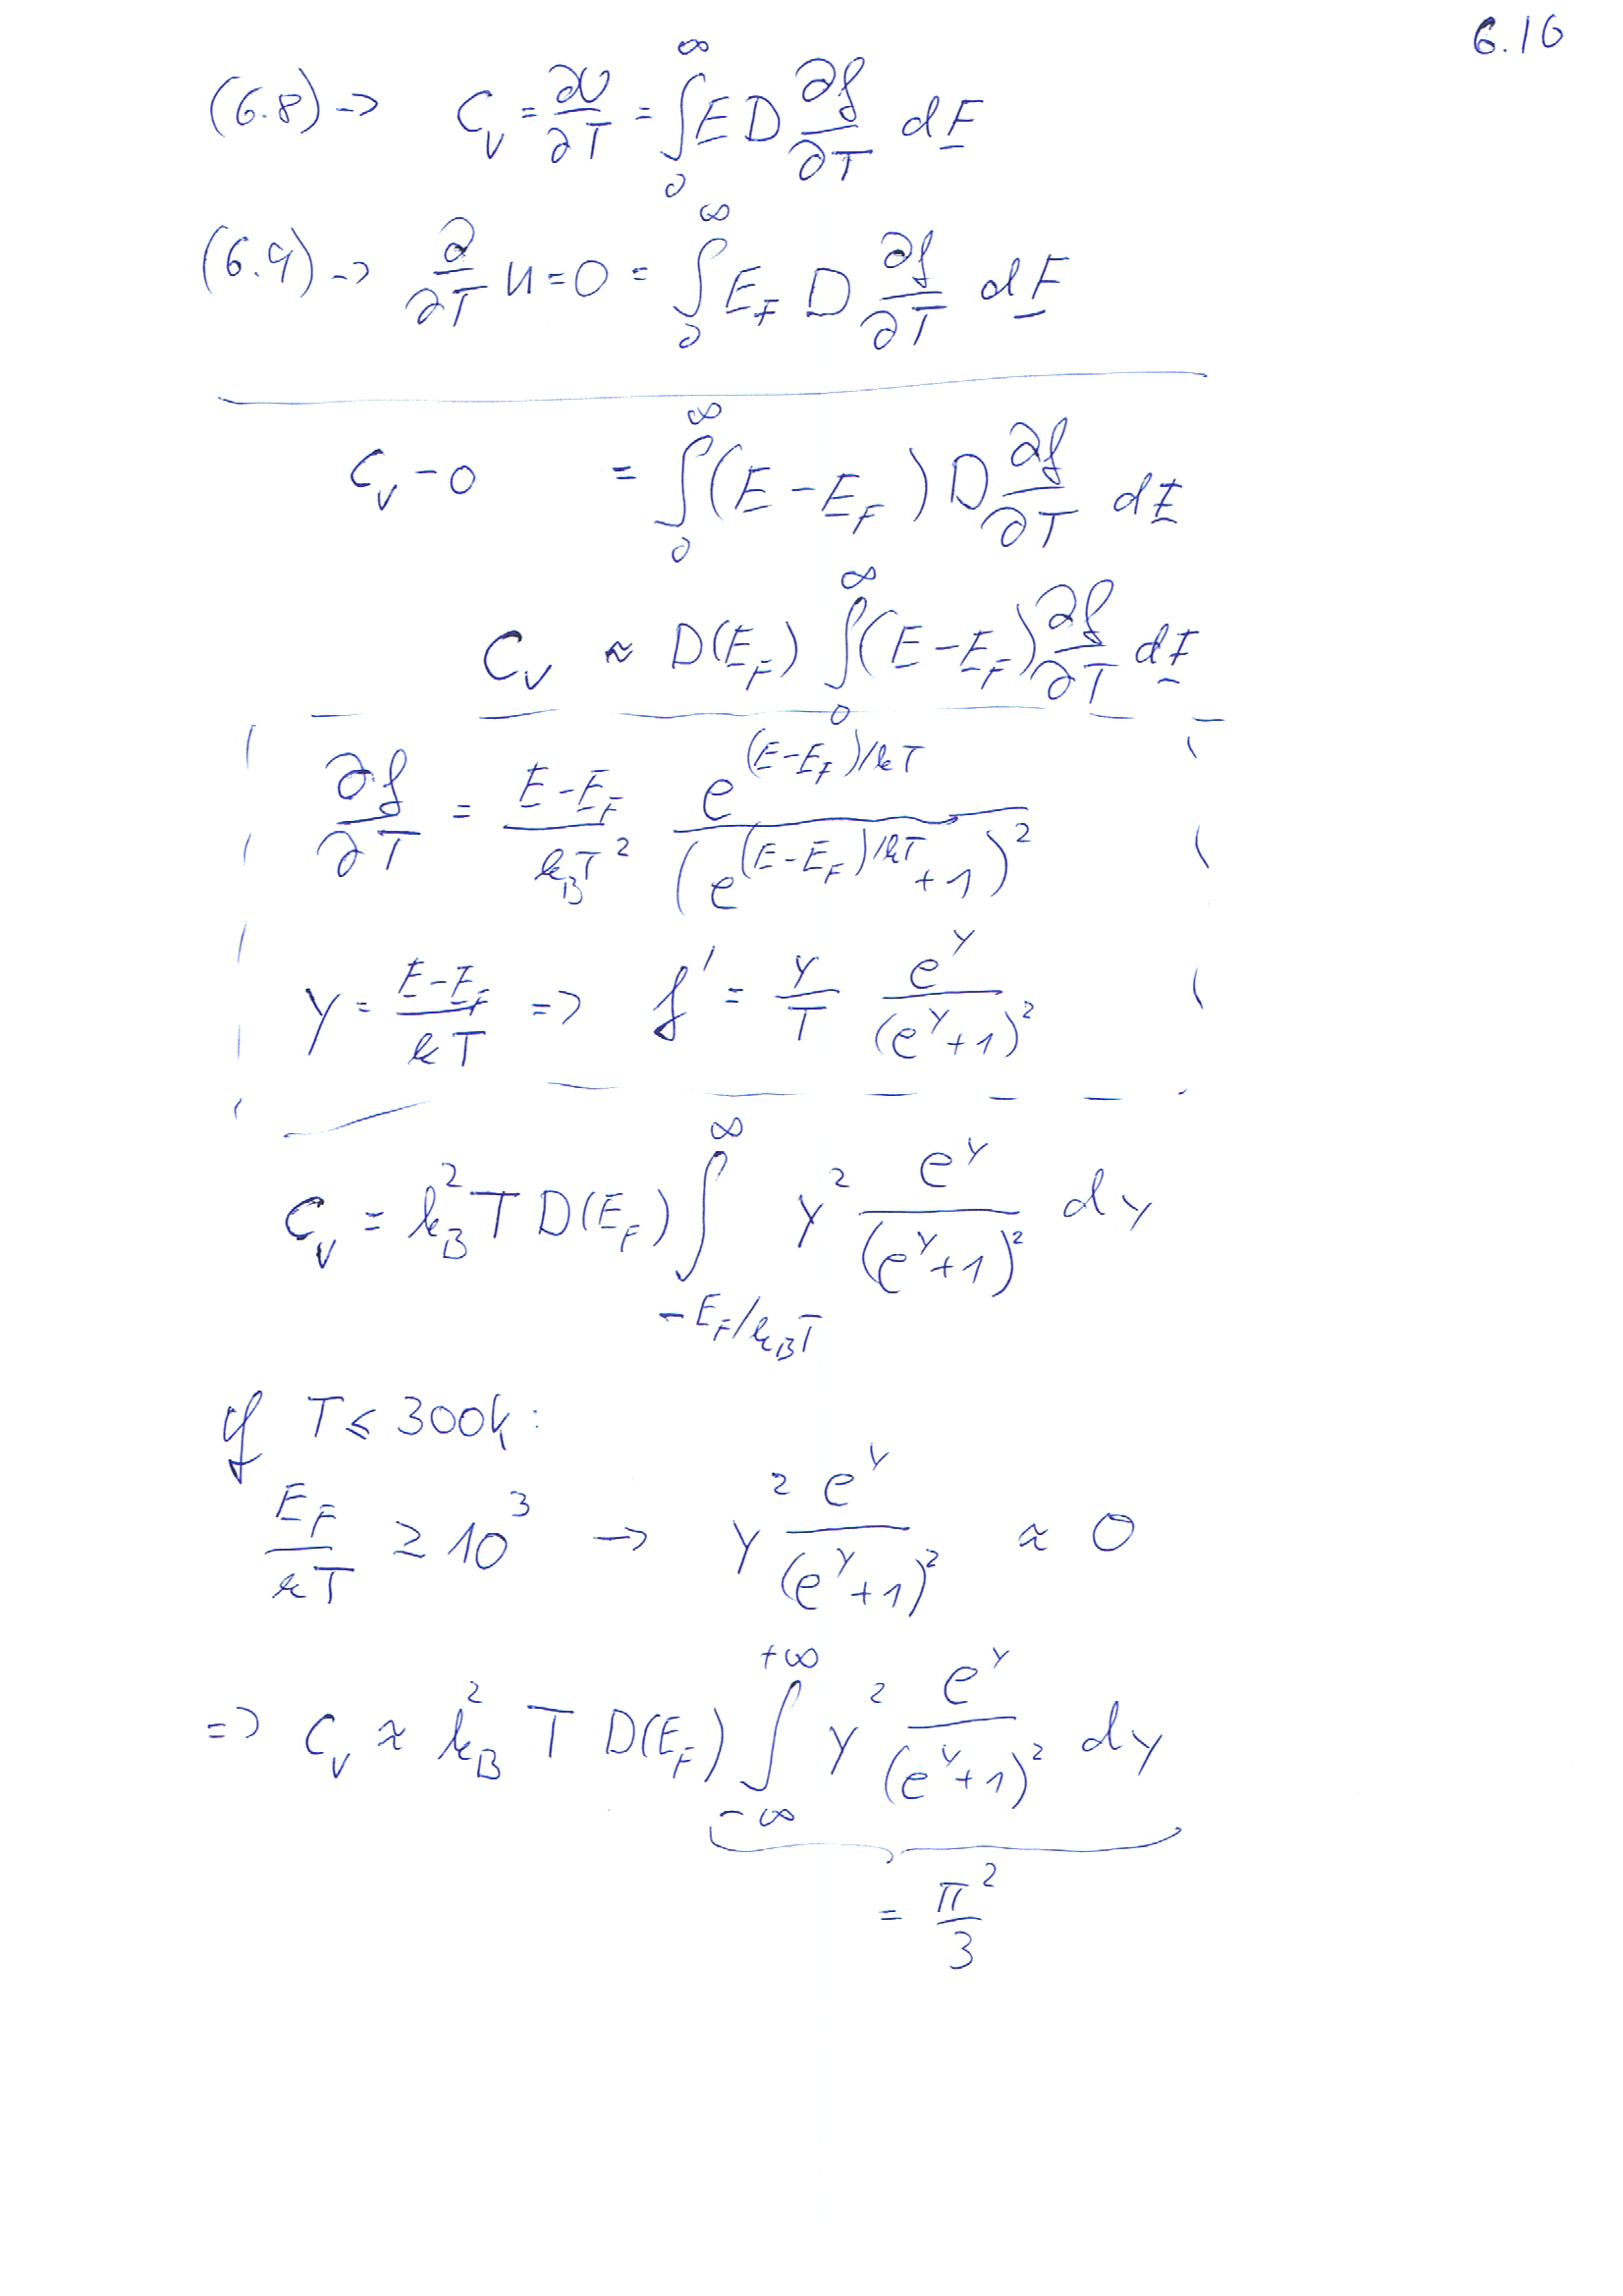 6.16
(6.8) -> C_V = ∂U/∂T = ∫_0^∞ E D ∂f/∂T dE
(6.9) -> ∂/∂T n = 0 = ∫_0^∞ E_F D ∂f/∂T dE
C_V - 0 = ∫_0^∞ (E - E_F) D ∂f/∂T dE
C_V ≈ D(E_F) ∫_0^∞ (E - E_F) ∂f/∂T dE
∂f/∂T = (E - E_F)/(k_B T^2) e^((E-E_F)/kT)/(e^((E-E_F)/kT) + 1)^2
y = (E - E_F)/(kT) => f' = y/T e^y/(e^y + 1)^2
C_V = k_B^2 T D(E_F) ∫_{-E_F/k_B T}^∞ y^2 e^y/(e^y + 1)^2 dy
if T ≤ 300K:
E_F/(kT) ≥ 10^3 -> y^2 e^y/(e^y + 1)^2 ≈ 0
=> C_V ≈ k_B^2 T D(E_F) ∫_{-∞}^{+∞} y^2 e^y/(e^y + 1)^2 dy
= π^2/3